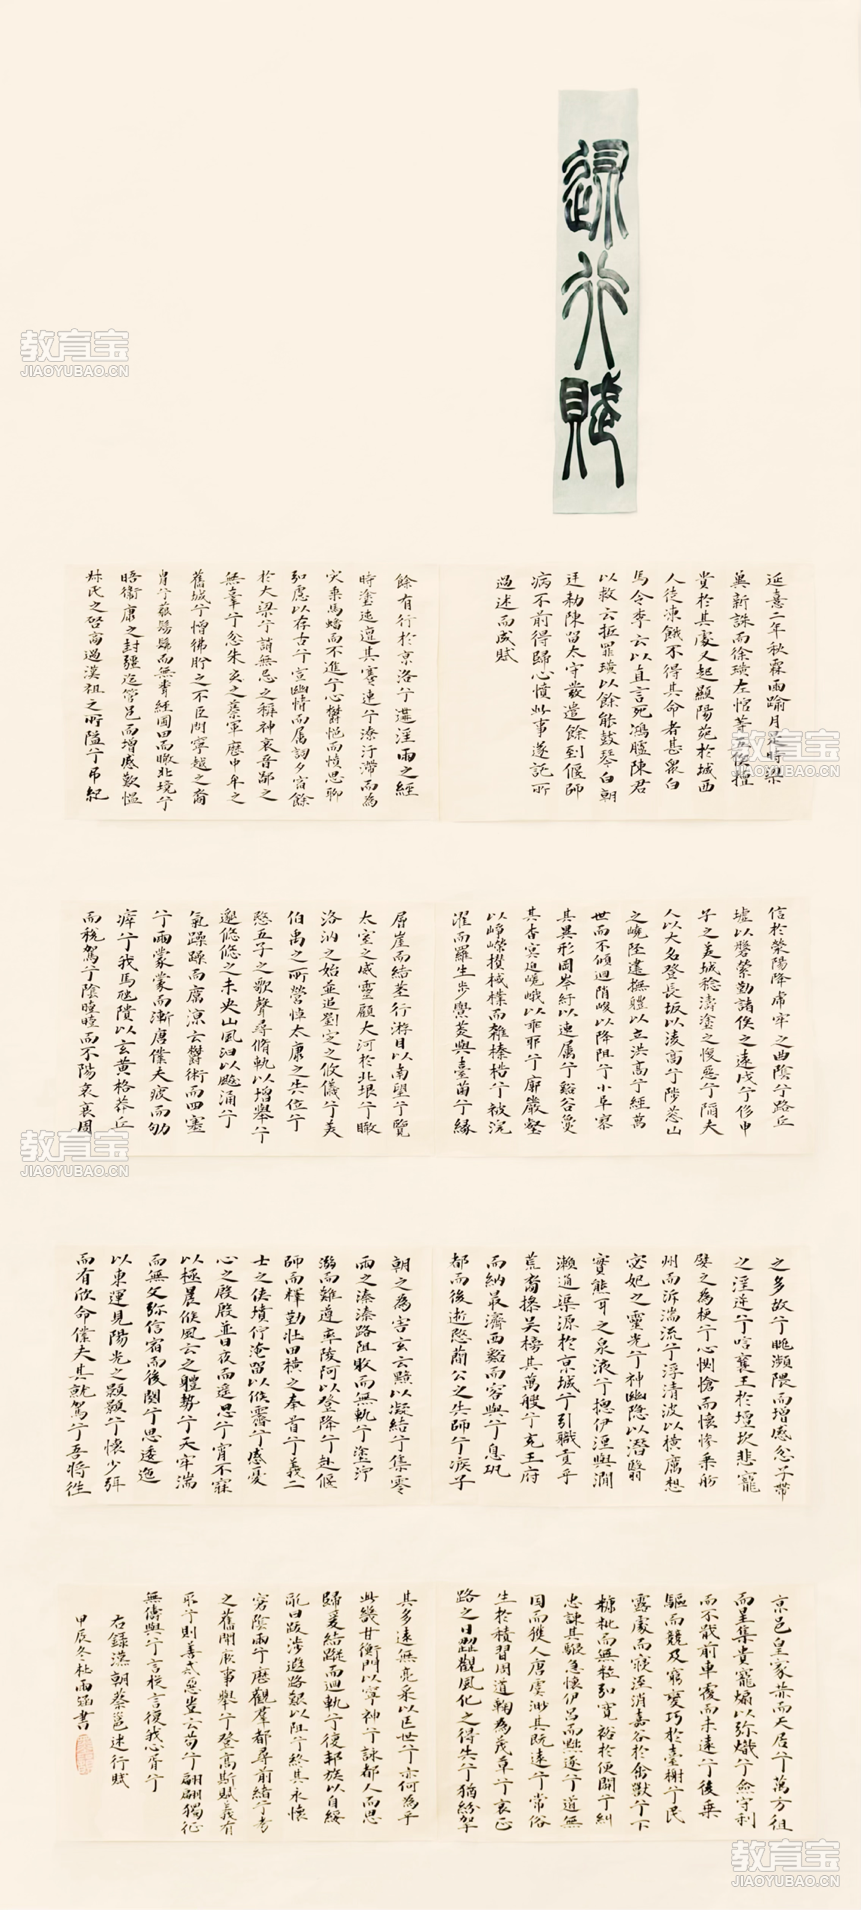 述行賦
延憙二年秋霖雨踰月是時梁
冀新誅而徐璜左悺等五侯擅
貴於其處又起顯陽苑於城西
人徒凍餓不得其命者甚眾白
馬令李云以直言死鴻臚陳君
以救云抵罪璜以餘能鼓琴白朝
廷勑陳留太守發遣餘到偃師
病不前得歸心憤此事遂託所
過述而成賦
餘有行於京洛兮遘淫雨之經
時塗迍邅其蹇連兮潦汙滯而為
災乘馬蟠而不進兮心鬱悒而憤思聊
弘慮以存古兮宣幽情而屬詞夕宿餘
於大梁兮誚無忌之稱神哀晉鄙之
無辜兮忿朱亥之篡軍歷中牟之
舊城兮憎佛肸之不臣問甯越之裔
胄兮藐髣髴而無聞經圃田而瞰北境兮
晤衛康之封疆迄管邑而增感歎慍
叔氏之啓商過漢祖之所隘兮吊紀
信於滎陽降虎牢之曲陰兮路丘
墟以盤縈勤諸侯之遠戍兮侈申
子之美城稔濤塗之愎惡兮陷夫
人以大名登長坂以淩高兮陟蔥山
之嶢陘建撫體以立洪高兮經萬
世而不傾迴陗峻以降阻兮小阜寥
其異形岡岑紆以連屬兮谿谷夐
其杳冥迫嵯峨以乖邪兮廓巖壑
以崢嶸攢棫樸而雜榛楛兮被浣
濯而羅生步亹菼與臺菌兮緣
層崖而結莖行游目以南望兮覽
太室之威靈顧大河於北垠兮瞰
洛汭之始並追劉定之攸儀兮美
伯禹之所營悼太康之失位兮
愍五子之歌聲尋脩軌以增舉兮
邈悠悠之未央山風汩以飇涌兮
氣懆懆而厲涼云鬱術而四塞
兮雨蒙蒙而漸唐僕夫疲而劬
瘁兮我馬虺隤以玄黃格莽丘
而稅駕兮陰曀曀而不陽哀衰周
之多故兮眺瀕隈而增感忿子帶
之淫逆兮唁襄王於壇坎悲寵
嬖之為梗兮心惻愴而懷慘乘舫
州而泝湍流兮浮清波以橫厲想
宓妃之靈光兮神幽隱以潛翳
實熊耳之泉液兮總伊瀍與澗
瀨通渠源於京城兮引職貢乎
荒裔操吳榜其萬艘兮充王府
而納最濟西谿而容與兮息鞏
都而後逝愍簡公之失師兮疾子
朝之為害玄云黯以凝結兮集零
雨之溱溱路阻敗而無軌兮塗濘
溺而難遵率陵阿以登降兮赴偃
師而釋勤壯田橫之奉首兮義二
士之俠墳佇淹留以候霽兮感憂
心之殷殷並日夜而遙思兮宵不寐
以極晨候風云之體勢兮天牢湍
而無文彌信宿而後闋兮思逶迤
以東運見陽光之顥顥兮懷少弭
而有欣命僕夫其就駕兮吾將往
京邑皇家赫而天居兮萬方徂
而星集貴寵煽以彌熾兮僉守利
而不戢前車覆而未遠兮後乘
驅而競及窮變巧於臺榭兮民
露處而寢濕消嘉谷於禽獸兮下
糠秕而無粒弘寬裕於便闢兮糾
忠諫其駸急懷伊呂而黜逐兮道無
因而獲人唐虞渺其既遠兮常俗
生於積習周道鞠為茂草兮哀正
路之日澀觀風化之得失兮猶紛挐
其多遠無亮采以匡世兮亦何為乎
此畿甘衡門以寧神兮詠都人而思
歸爰結蹤而迴軌兮復邦族以自綏
亂曰跋涉遐路艱以阻兮終其永懷
窘陰雨兮歷觀羣都尋前緒兮考
之舊聞厥事舉兮登高斯賦義有
取兮則善戒惡豈云苟兮翩翩獨征
無儔與兮言旋言復我心胥兮
右錄漢朝蔡邕述行賦
甲辰冬杜雨涵書
教育宝
JIAOYUBAO.CN
教育宝
JIAOYUBAO.CN
教育宝
JIAOYUBAO.CN
教育宝
JIAOYUBAO.CN